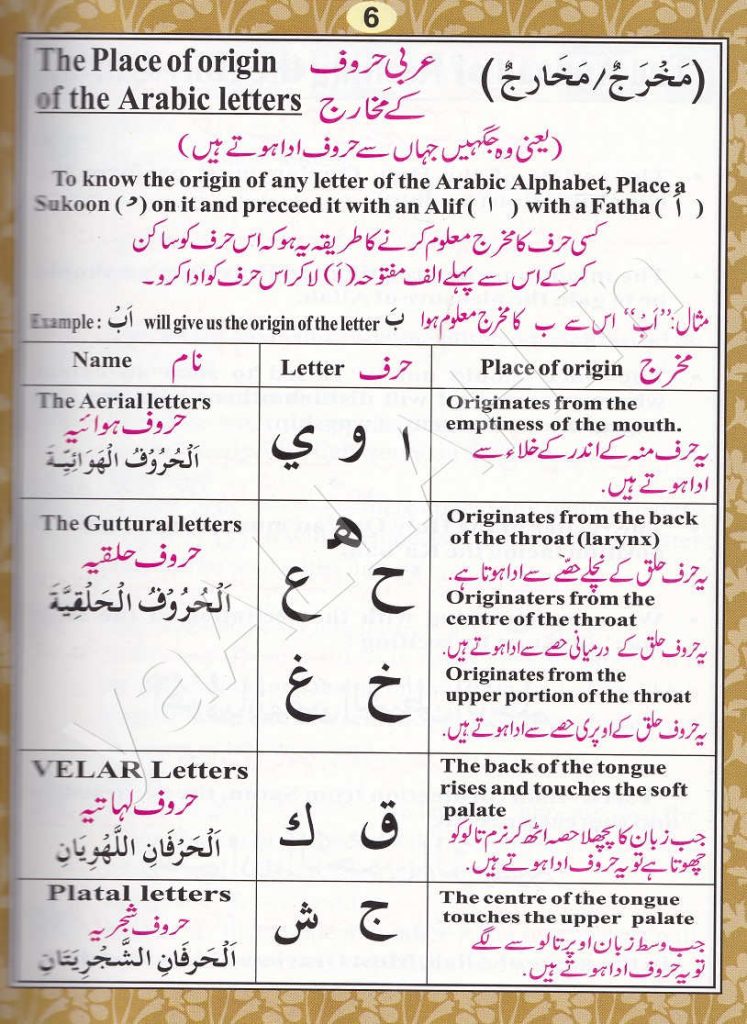 6
The Place of origin عربی حروف (مَخْرَجٌ/مَخَارِجٌ)
of the Arabic letters کے مَخارج
(یعنی وہ جگہیں جہاں سے حروف ادا ہوتے ہیں)
To know the origin of any letter of the Arabic Alphabet, Place a
Sukoon ( ْ ) on it and preceed it with an Alif ( ا ) with a Fatha ( اَ )
کسی حرف کا مخرج معلوم کرنے کا طریقہ یہ ہو کہ اس حرف کو ساکن
کر کے اس سے پہلے الف مفتوحہ (اَ) لا کر اس حرف کو ادا کرو۔
مثال: ”اَبْ“ اس سے ب کا مخرج معلوم ہوا
Example : اَبْ will give us the origin of the letter بَ
Name نام
Letter حرف
Place of origin مخرج
The Aerial letters
حروف ہوائیہ
اَلْحُرُوْفُ الْهَوَائِيَّةَ
ا و ي
Originates from the
emptiness of the mouth.
یہ حرف منہ کے اندر کے خلاء سے
ادا ہوتے ہیں.
The Guttural letters
حروف حلقیہ
اَلْحُرُوْفُ الْحَلْقِيَّةَ
ه
ح ع
خ غ
Originates from the back
of the throat (larynx)
یہ حرف حلق کے نچلے حصّے سے ادا ہوتا ہے.
Originaters from the
centre of the throat
یہ حروف حلق کے درمیانی حصے سے ادا ہوتے ہیں.
Originates from the
upper portion of the throat
یہ حروف حلق کے اوپری حصے سے ادا ہوتے ہیں.
VELAR Letters
حروف لہاتیہ
اَلْحَرْفَانِ اللَّهْوِيَانِ
ق ك
The back of the tongue
rises and touches the soft
palate
جب زبان کا پچھلا حصہ اٹھ کر نرم تالو کو
چھوتا ہے تو یہ حروف ادا ہوتے ہیں.
Platal letters
حروف شجریہ
اَلْحَرفَانِ الشَّجْرِيَتَانِ
ج ش
The centre of the tongue
touches the upper palate
جب وسط زبان اوپر تالو سے لگے
تو یہ حروف ادا ہوتے ہیں.